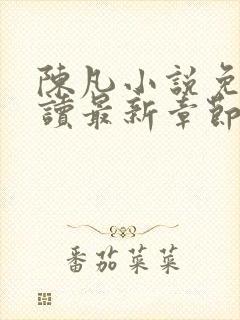 陳凡小說免
讀最新章節
番茄菜菜